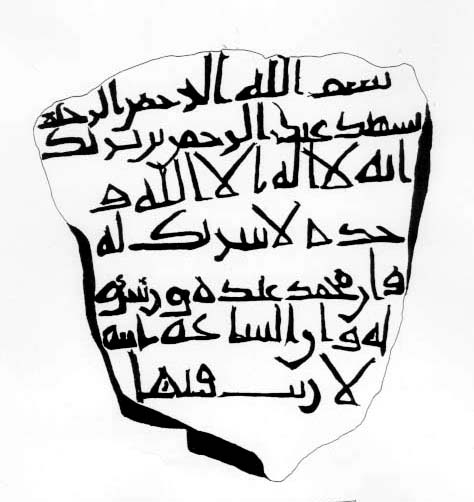 بسم الله الرحمن الرحيم
يشهد عبد الرحمن بن
انه لا اله الا الله و
حده لا شريك له
وان محمد عبده ورسو
له وان الساعة اتية
لا ريب فيها